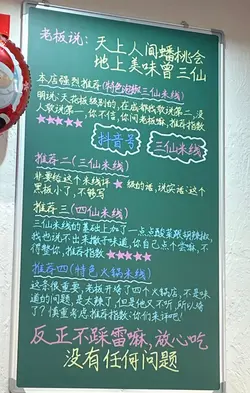 老板说：天上人间蟠桃会
地上美味曾三仙
本店强烈推荐(特色泡椒三仙米线)
明说：天花板级别的，在成都我敢说第二，没
人敢说第一，你不信，你问老板嘛，推荐指数
★★★★★
抖音号
三仙米线
推荐二(三仙米线)
非要给这个米线评★级的话，说实话：这个
黑板小了，不够写
推荐三(四仙米线)
三仙米线的基础上加了一点点酸菜跟胡辣椒，
我也说不出来撒子味道，你自己点个尝嘛，不
得整你，推荐指数：★★★★★
推荐四(特色火锅米线)
这条很重要，老板开垮了四个火锅店，不是味
道的问题，是太辣了，但是他又不听，所以垮
了？慎重考虑推荐指数：你们来评吧！
反正不踩雷嘛，放心吃
没有任何问题